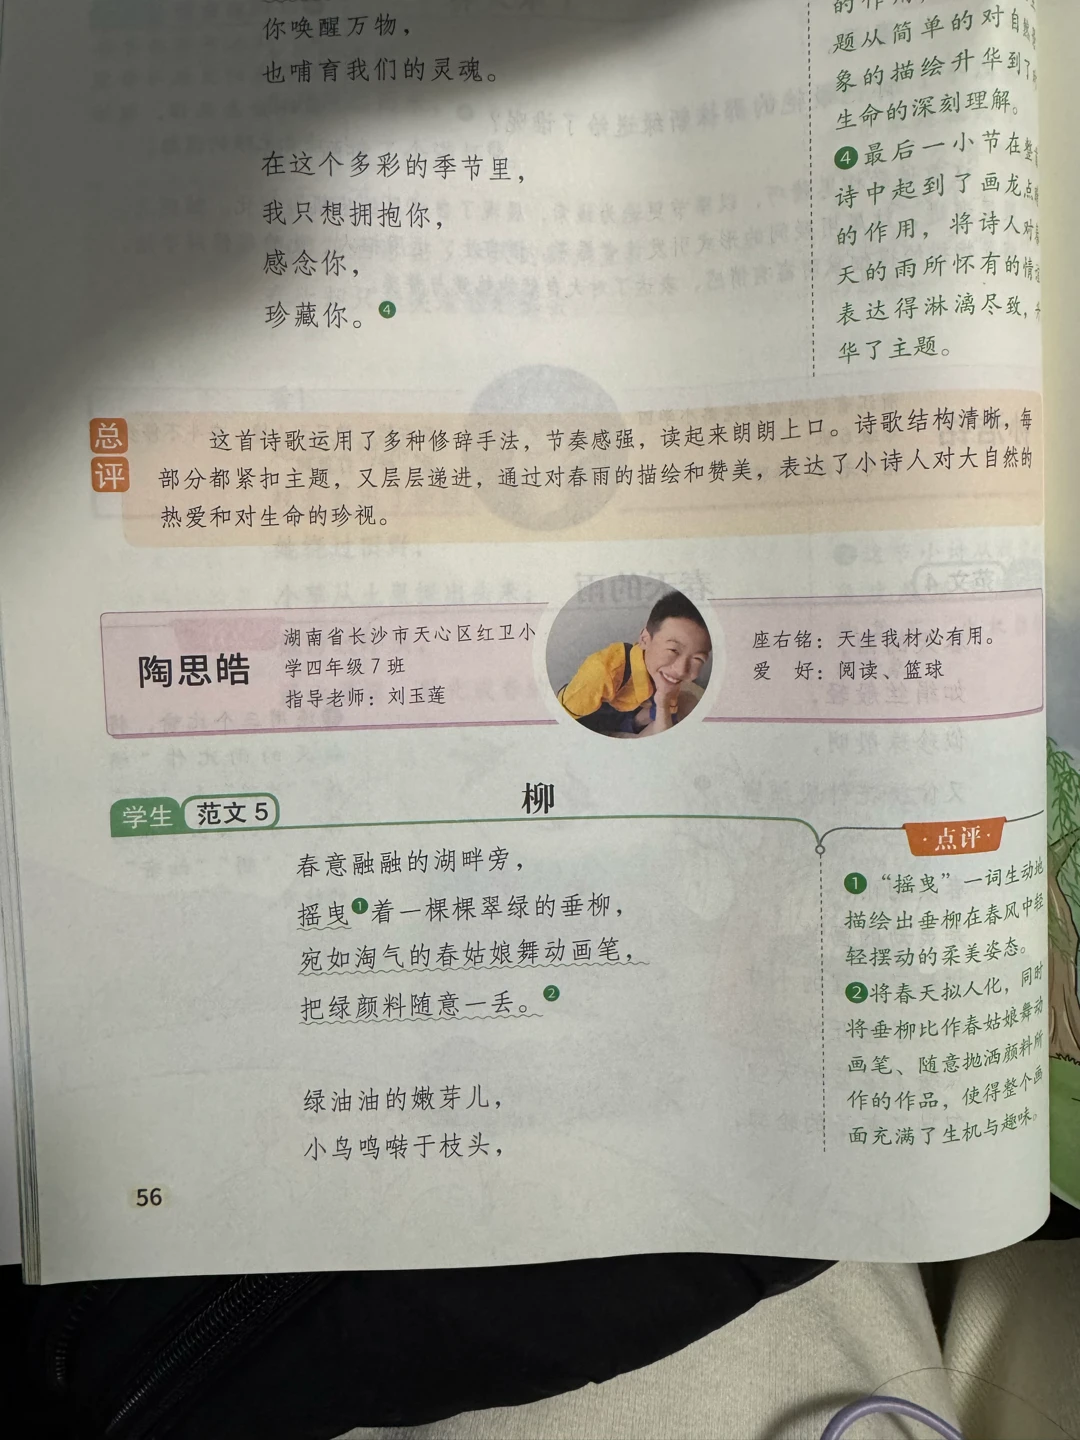 你唤醒万物，
也哺育我们的灵魂。
在这个多彩的季节里，
我只想拥抱你，
感念你，
珍藏你。④
题从简单的对自然
象的描绘升华到了
生命的深刻理解。
④最后一小节在整
诗中起到了画龙点
的作用，将诗人对
天的雨所怀有的情
表达得淋漓尽致，
华了主题。
总评
这首诗歌运用了多种修辞手法，节奏感强，读起来朗朗上口。诗歌结构清晰，每
部分都紧扣主题，又层层递进，通过对春雨的描绘和赞美，表达了小诗人对大自然的
热爱和对生命的珍视。
陶思皓
湖南省长沙市天心区红卫小
学四年级7班
指导老师：刘玉莲
座右铭：天生我材必有用。
爱 好：阅读、篮球
学生 范文5
柳
春意融融的湖畔旁，
摇曳①着一棵棵翠绿的垂柳，
宛如淘气的春姑娘舞动画笔，
把绿颜料随意一丢。②
绿油油的嫩芽儿，
小鸟鸣啭于枝头，
·点评·
①“摇曳”一词生动地
描绘出垂柳在春风中轻
轻摆动的柔美姿态。
②将春天拟人化，同时
将垂柳比作春姑娘舞动
画笔、随意抛洒颜料所
作的作品，使得整个画
面充满了生机与趣味。
56